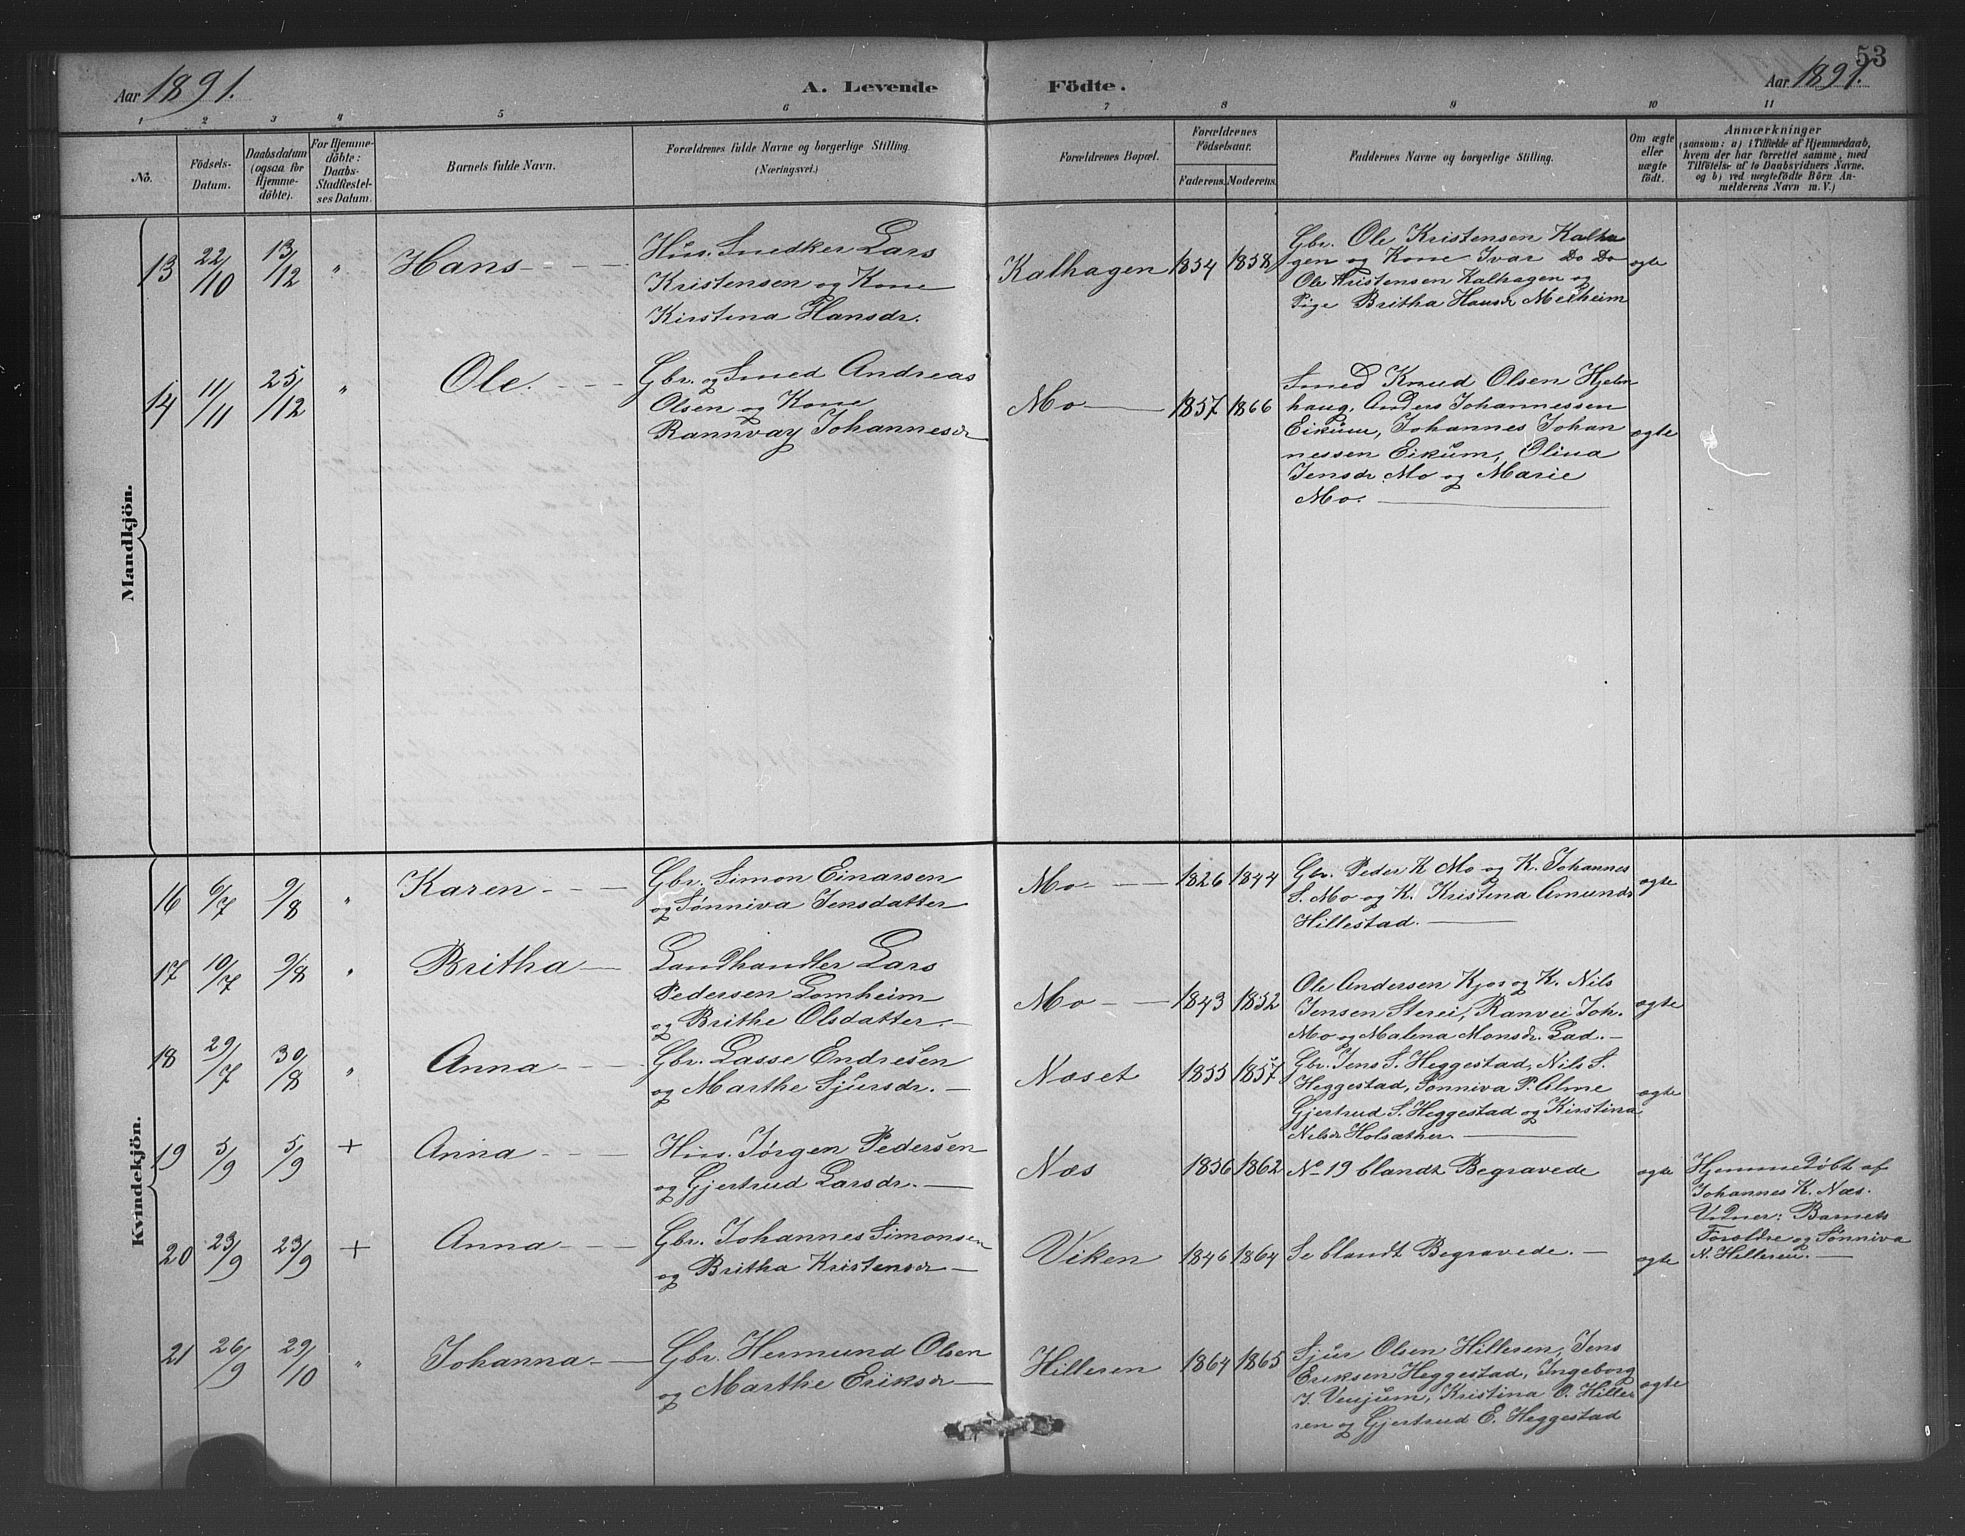 53
Aar 1891. A. Levende Födte. Aar 1891.
1 2 3 4 5 6 7 8 9 10 11
No.
Födsels-
Datum.
Daabsdatum
(ogsaa for
Hjemme-
döbte).
For Hjemme-
döbte:
Daabs-
Stadfæstel-
ses Datum.
Barnets fulde Navn.
Forældrenes fulde Navne og borgerlige Stilling.
(Næringsvei.)
Forældrenes Bopæl.
Forældrenes
Födselsaar.
Faderens. Moderens.
Faddernes Navne og borgerlige Stilling.
Om ægte
eller
uægte
födt.
Anmærkninger
(saasom: a) i Tilfælde af Hjemmedaab,
hvem der har forrettet samme, med
Tilföielse af to Daabsvidners Navne,
og b) ved uægtefödte Börn An-
melderens Navn m. V.)
Mandkjön.
13 22/10 13/12 " Hans
Hus. Snedker Lars
Kristensen og Kone
Kirstina Hansdr.
Kalhagen 1854 1858
Gbr. Ole Kristensen Kalha
gen og Kone Ivar Do Do
Ole Kristensen Kalhagen og
Pige Britha Hansdr Melheim
ægte
14 11/11 25/12 " Ole.
Gbr. og Smed Andreas
Olsen og Kone
Rannvay Johannesdr
Mo 1857 1866
Smed Knud Olsen Hjelm
haug, Anders Johannessen
Eikum, Johannes Johan
nessen Eikum, Olina
Jensdr. Mo og Marie
Mo.
ægte
Kvindekjön.
16 6/7 9/8 " Karen
Gbr. Simon Einarsen
og Sønniva Jensdatter
Mo 1826 1844
Gbr. Peder K Mo og K. Johannes
S. Mo og K. Kristina Amundr
Hillestad.
ægte
17 10/7 9/8 " Britha
Landhandler Lars
Pedersen Lomheim
og Brithe Olsdatter.
Mo 1843 1852
Ole Andersen Kjos og K. Nils
Jensen Sterei, Ranvei Joh.
Mo og Malena Monsdr. Gad.
ægte
18 29/7 30/8 " Anna
Gbr. Lasse Endresen
og Marthe Sjursdr.
Næset 1855 1857
Gbr. Jens S. Heggestad, Nils S.
Heggestad, Sønniva P. Alme
Gjertrud S. Heggestad og Kirstina
Nilsdr Holsæther.
ægte
19 5/9 5/9 + Anna
Hus. Jørgen Pedersen
og Gjertrud Larsdr.
Næs 1856 1862
No 19 blandt Begravede
ægte
Hjemmedøbt af
Johannes K. Næs.
Vidner: Barnets
Foræ­ldre og Sønniva
N. Hilleren.
20 23/9 23/9 + Anna
Gbr. Johannes Simonsen
og Britha Kristensdr
Viken 1846 1864
Se blandt Begravede.
ægte
21 26/9 29/10 " Johanna
Gbr. Hermund Olsen
og Marthe Eriksdr
Hilleren 1864 1865
Sjur Olsen Hilleren, Jens
Eriksen Heggestad, Ingeborg
J. Venjum, Kristina O. Hille
ren og Gjertrud E. Heggestad
ægte